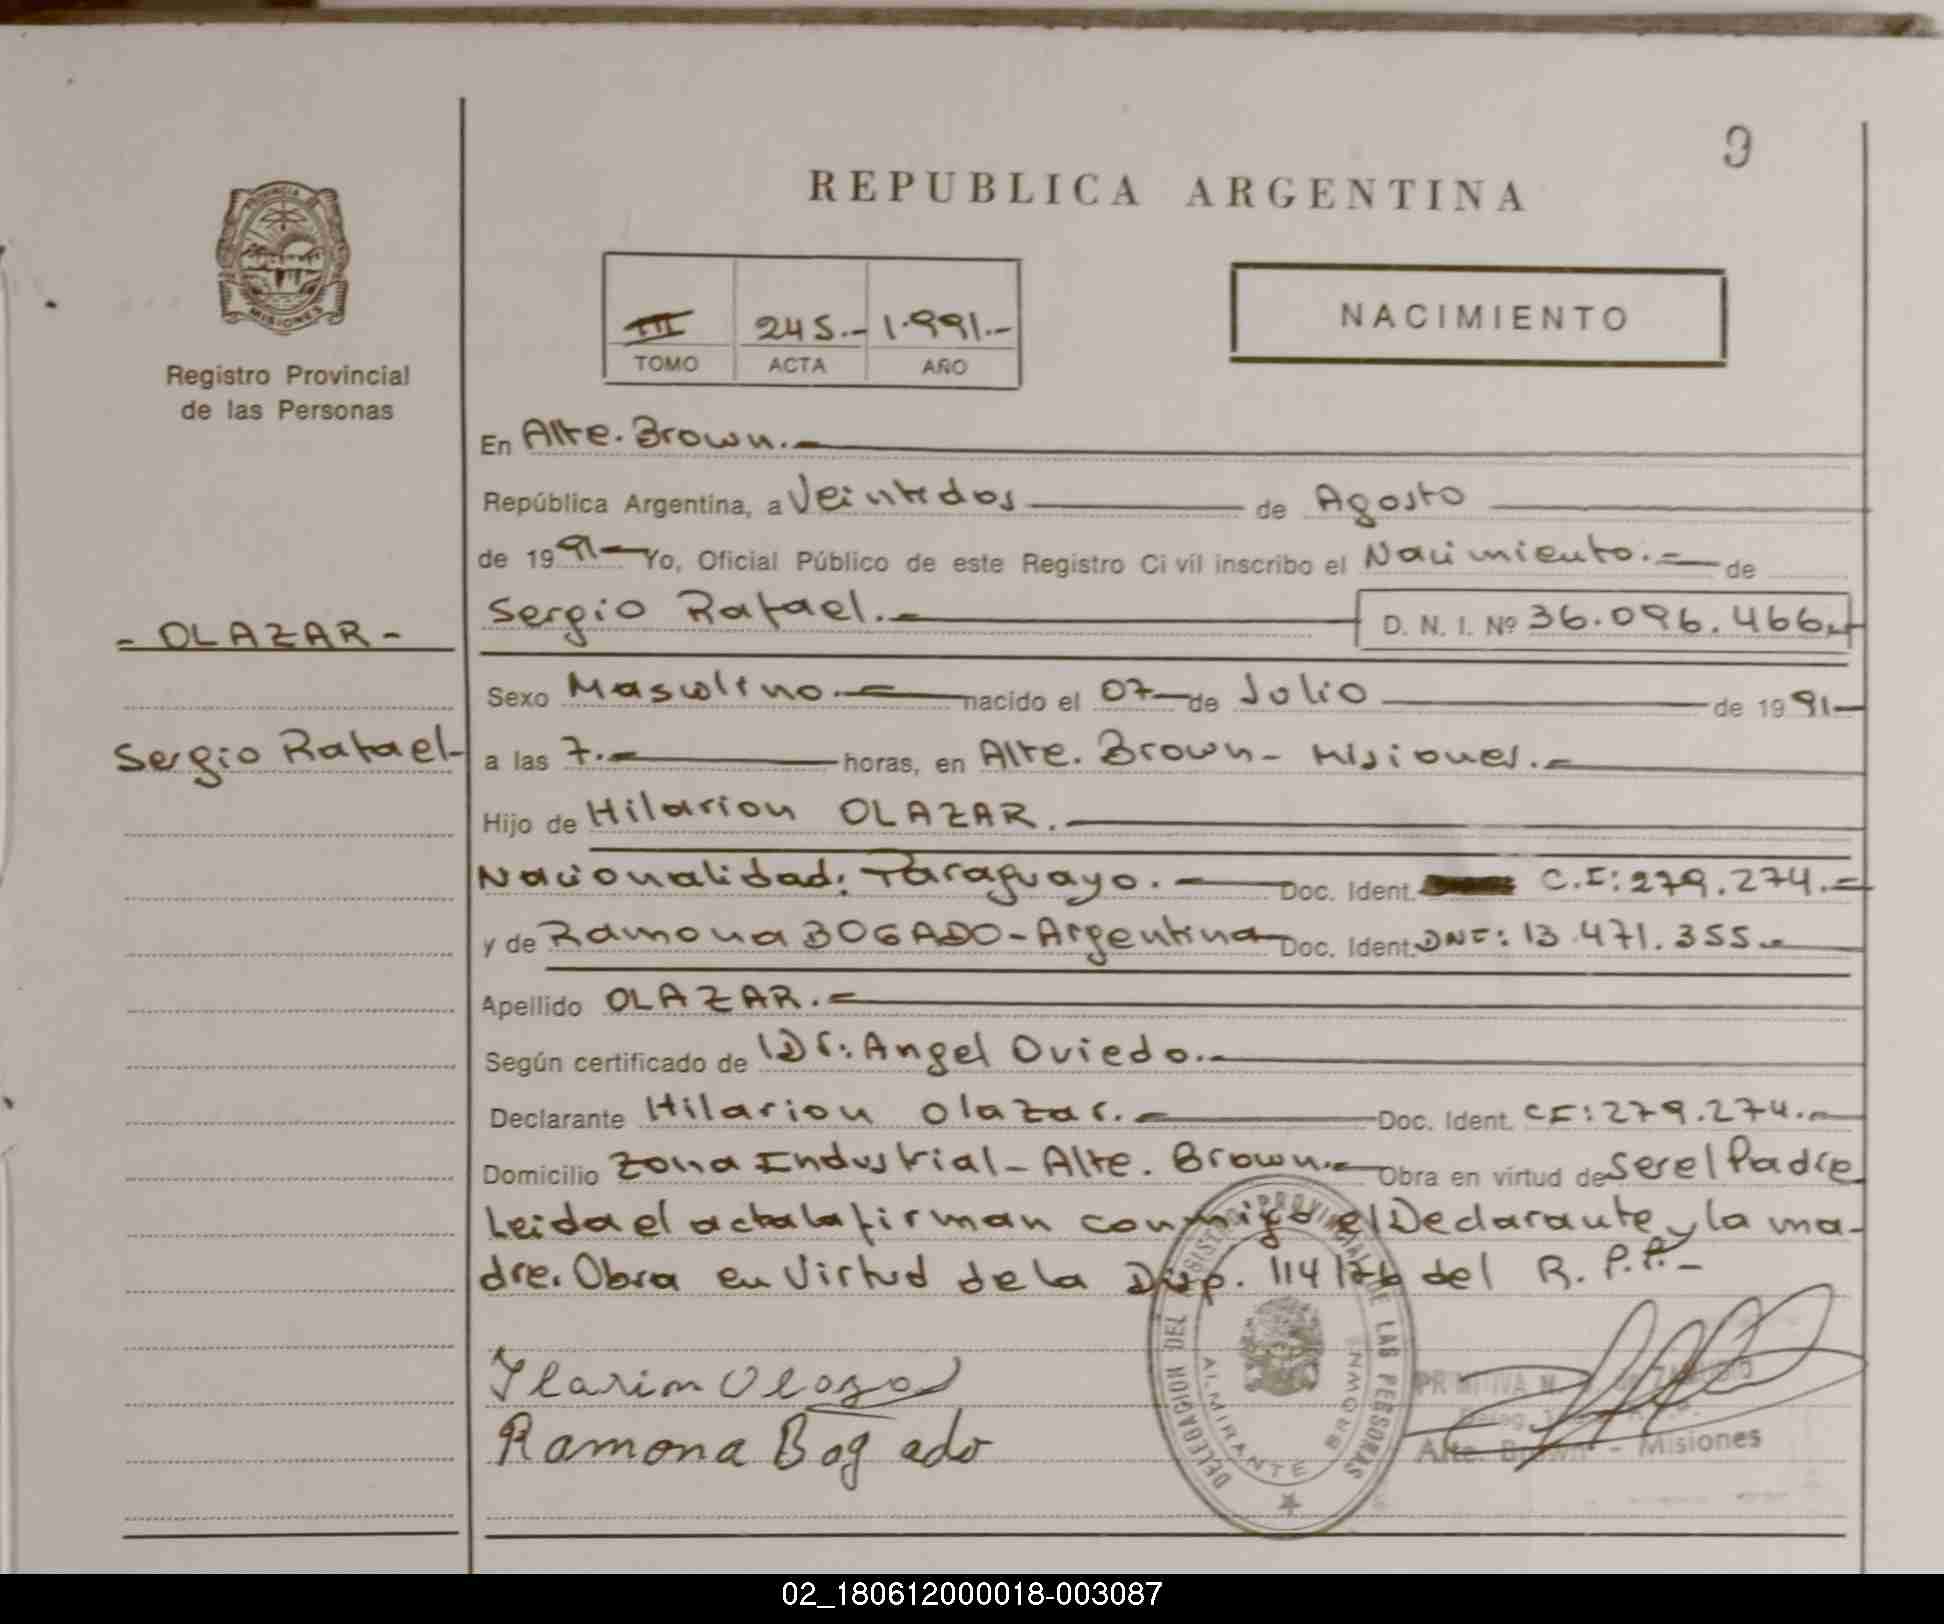 9
REPUBLICA ARGENTINA
PROVINCIA
MISIONES
Registro Provincial
de las Personas
III 245.- 1.991.-
TOMO ACTA AÑO
NACIMIENTO
En Alte. Brown.-
República Argentina, a Veintidos de Agosto
de 1991- Yo, Oficial Público de este Registro Civil inscribo el Nacimiento.- de
- OLAZAR -
Sergio Rafael.- D. N. I. Nº 36.096.466.-
Sexo Masculino.- nacido el 07- de Julio de 1991-
Sergio Rafael-
a las 7.- horas, en Alte. Brown- Misiones.-
Hijo de Hilarion OLAZAR.
Nacionalidad: Paraguayo.- Doc. Ident. C.I: 279.274.-
y de Ramona BOGADO-Argentina Doc. Ident. DNI: 13.471.355.-
Apellido OLAZAR.-
Según certificado de Dr: Angel Oviedo.-
Declarante Hilarion Olazar.- Doc. Ident. CI: 279.274.-
Domicilio Zona Industrial- Alte. Brown.- Obra en virtud de Ser el Padre
Leida el acta la firman conmigo el Declarante y la ma-
dre. Obra en Virtud de la Disp. 114/76 del R.P.P.-
Ilarion Olazar
Ramona Bogado
DELEGACION DEL REGISTRO PROVINCIAL DE LAS PERSONAS
ALMIRANTE BROWN
PRIMITIVA
Alte. Brown - Misiones
02_180612000018-003087